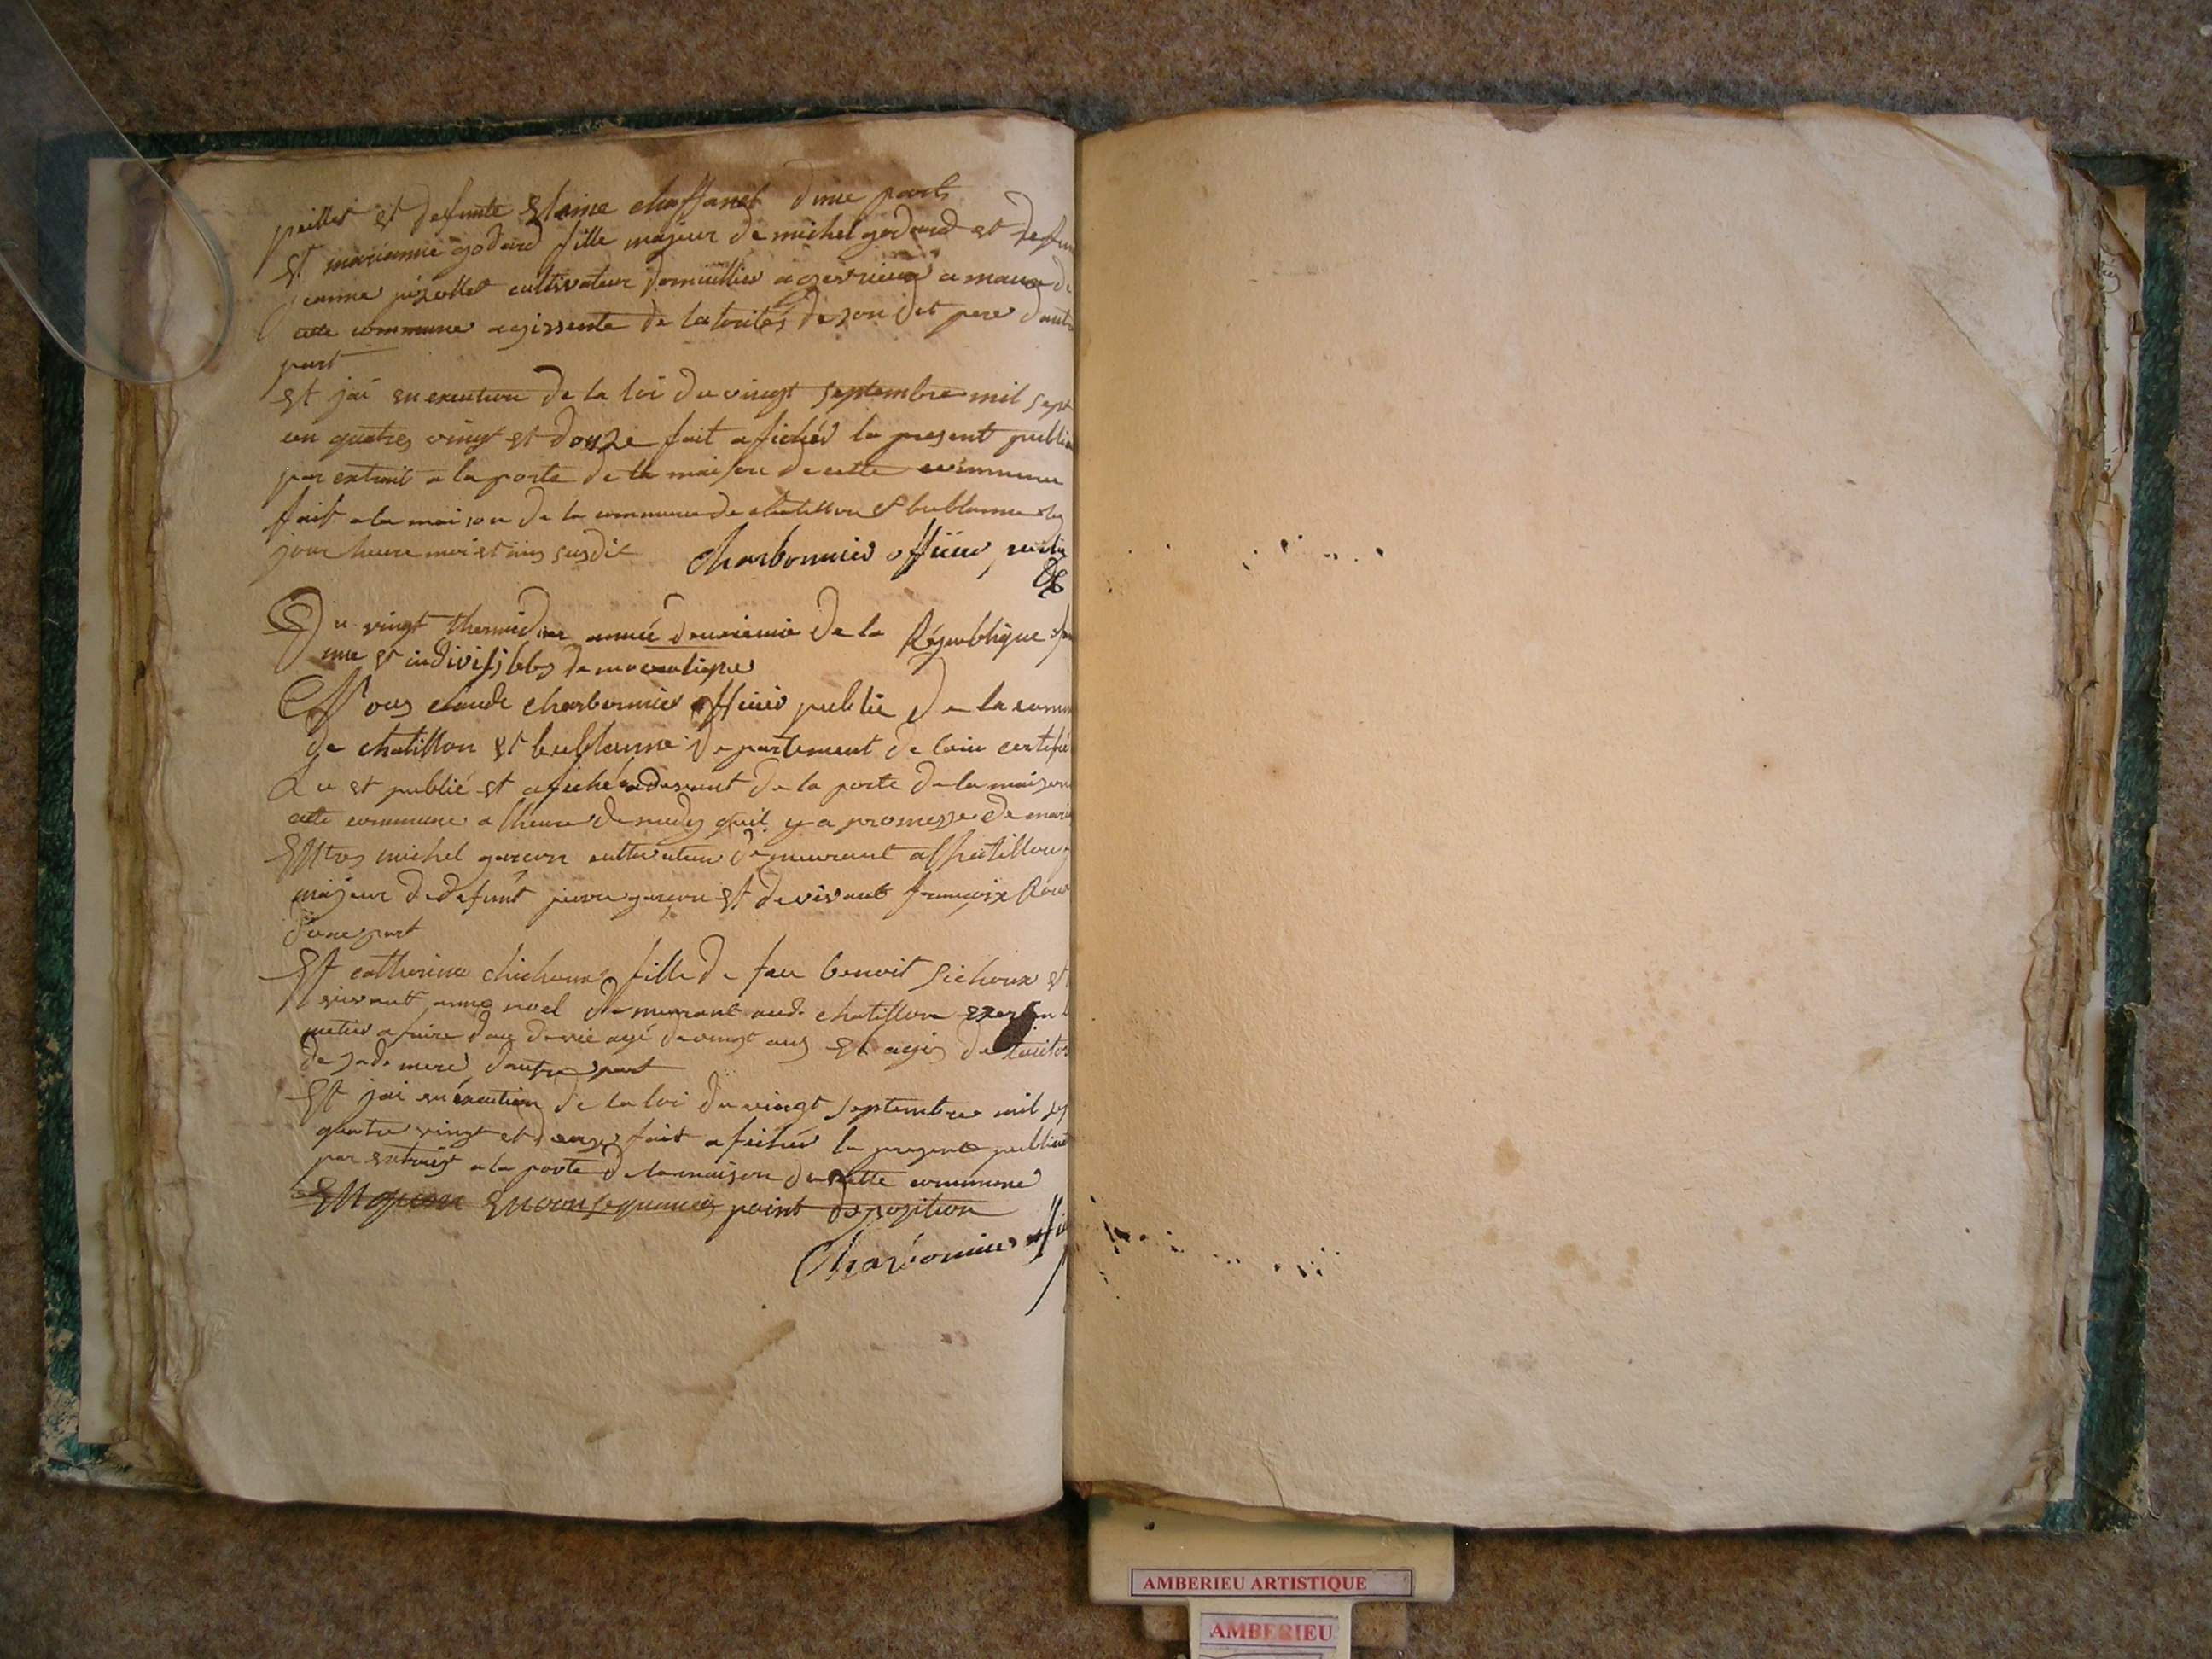 et defunte chaffanet dune part
Et marianne godard fille majeur de michel godard et defun
jeanne cultivateur domicillier a gevrieux a
cette commune agissente de latorités de son dit pere dautre
part
Et jai en execution de la loi du vingt septembre mil sept
cen quatres vingt et douze fait afichés la present public
par extrait a la porte de la maison de cette commune
fait a la maison de la commune de chatillon
jour heure mois et susdit charbonnier officier public
Du vingt thermidor année deuxieme de la République
une et indivisibles democratiques
Nous claude charbonnier officier public de la comm
de chatillon et bublanne departement de lain certifie
a et publié et afiché a devant de la porte de la maison
cette commune a lheure de midy quil y a promesse de mari
Entres michel garcon cultivateur demeurant a Chatillon
majeur de defunt pierre garcon et de vivant francoise
dune part
Et catherine chichoux fille de feu benoit sichoux et
vivant anne noel demeurant aud. chatillon
agé de vingt ans et agis de
de sade mere dautre part
Et jai en éxecution de la loi du vingt septembre mil sep
quatre vingt et douze fait afichés la presente publicat
par extrait a la porte de la maison de cette commune
En consequences point doposition
Charbonnier offi
AMBERIEU ARTISTIQUE
AMBERIEU